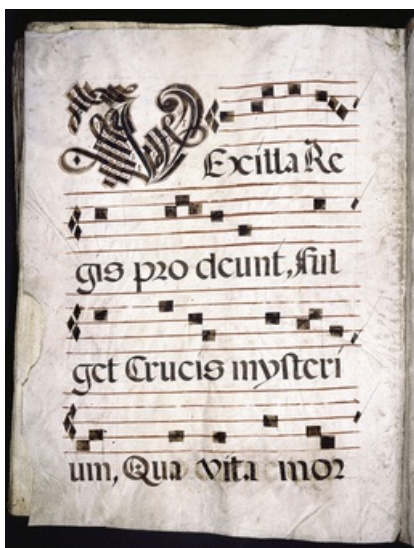 VExilla Re
gis pro deunt, Ful
get Crucis mysteri
um, Qua vita mor